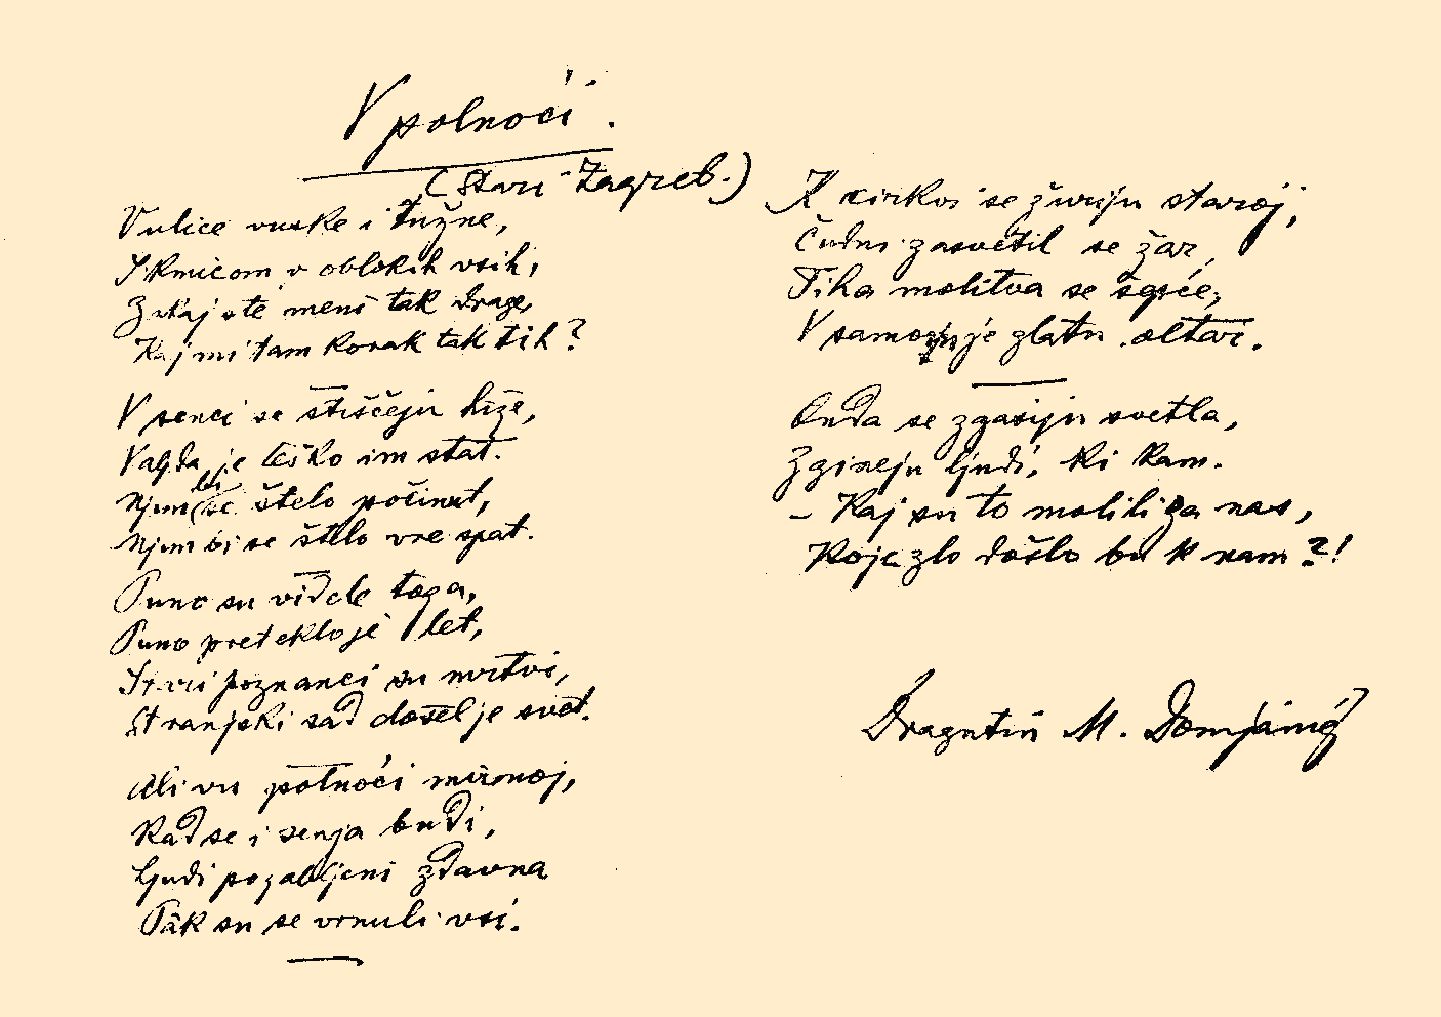 V polnoći.
(Stari Zagreb.)
Vulice vuske i tužne,
S kmicom v oblokih vsih,
Zakaj ste meni tak drage,
Kaj mi tam korak tak tih?
V senci se stiščeju hiže,
Valjda je teško im stat.
Njim bi se štelo počinut,
Njim bi se štelo vre spat.
Puno su videle toga,
Puno preteklo je let,
Stari poznanci su mrtvi,
Stranjski sad došel je svet.
Ali vu polnoći mirnoj,
Kad se i senja budi,
Ljudi pozabljeni zdavna
Pak su se vrnuli vsi.
K cirkvi se žuriju staroj,
Čudni zasvetil se žar,
Tiha molitva se šapće,
V samo je zlatu oltar.
Onda se zgasiju svetla,
Zgineju ljudi, ki kam.
– Kaj su to molili za nas,
Koje zlo došlo bu k nam?!
Dragutin M. Domjanić